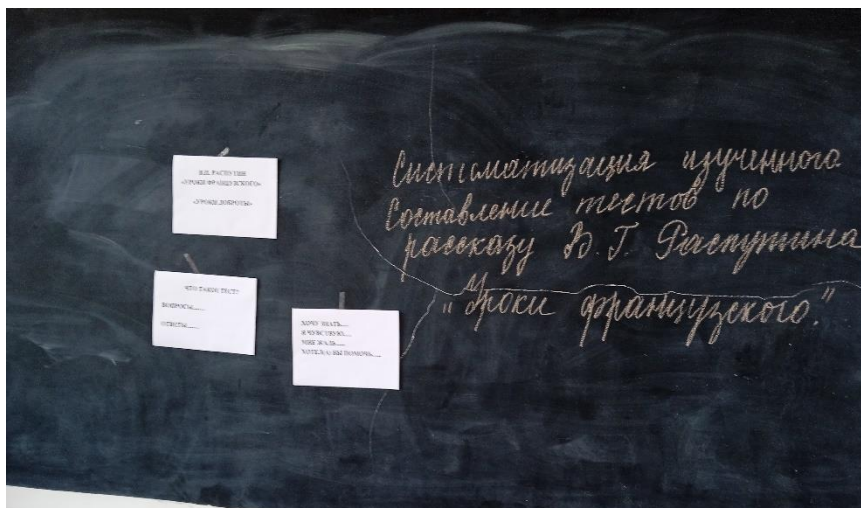 В.Г. РАСПУТИН
«УРОКИ ФРАНЦУЗСКОГО»
«УРОКИ ДОБРОТЫ»
ЧТО ТАКОЕ ТЕСТ?
ВОПРОСЫ......
ОТВЕТЫ......
ХОЧУ ЗНАТЬ.....
Я ЧУВСТВУЮ.....
МНЕ ЖАЛЬ.....
ХОТЕЛ(А) БЫ ПОМОЧЬ.....
Систематизация изученного
Составление тестов по
рассказу В. Г. Распутина
"Уроки французского."